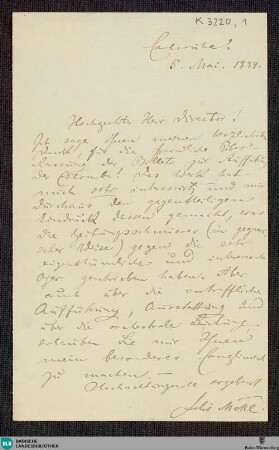 K 3220, 1
Carlsruhe
6. Mai. 1884.
Hochgeehrter Herr Director!
Ich sage Ihnen meinen herzlichsten
Dank, für die freundliche Über-
lassung der Billets zur Aufführung
der Colomba! Das Werk hat
mich sehr interessirt und mir
durchaus den gegentheiligen
Eindruck dessen gemacht, was
die Zeitungsschmierer (in
Weise) gegen die sehr
eigenthümliche und interessante
Oper geschrieben haben. Aber
auch über die vortreffliche
Aufführung, Ausstattung und
über die orchestrale Leistung
erlauben Sie mir Ihnen
mein besonderes Compliment
zu machen. —
Hochachtungsvoll ergebenst
BLB
BADISCHE
LANDESBIBLIOTHEK
Baden-Württemberg